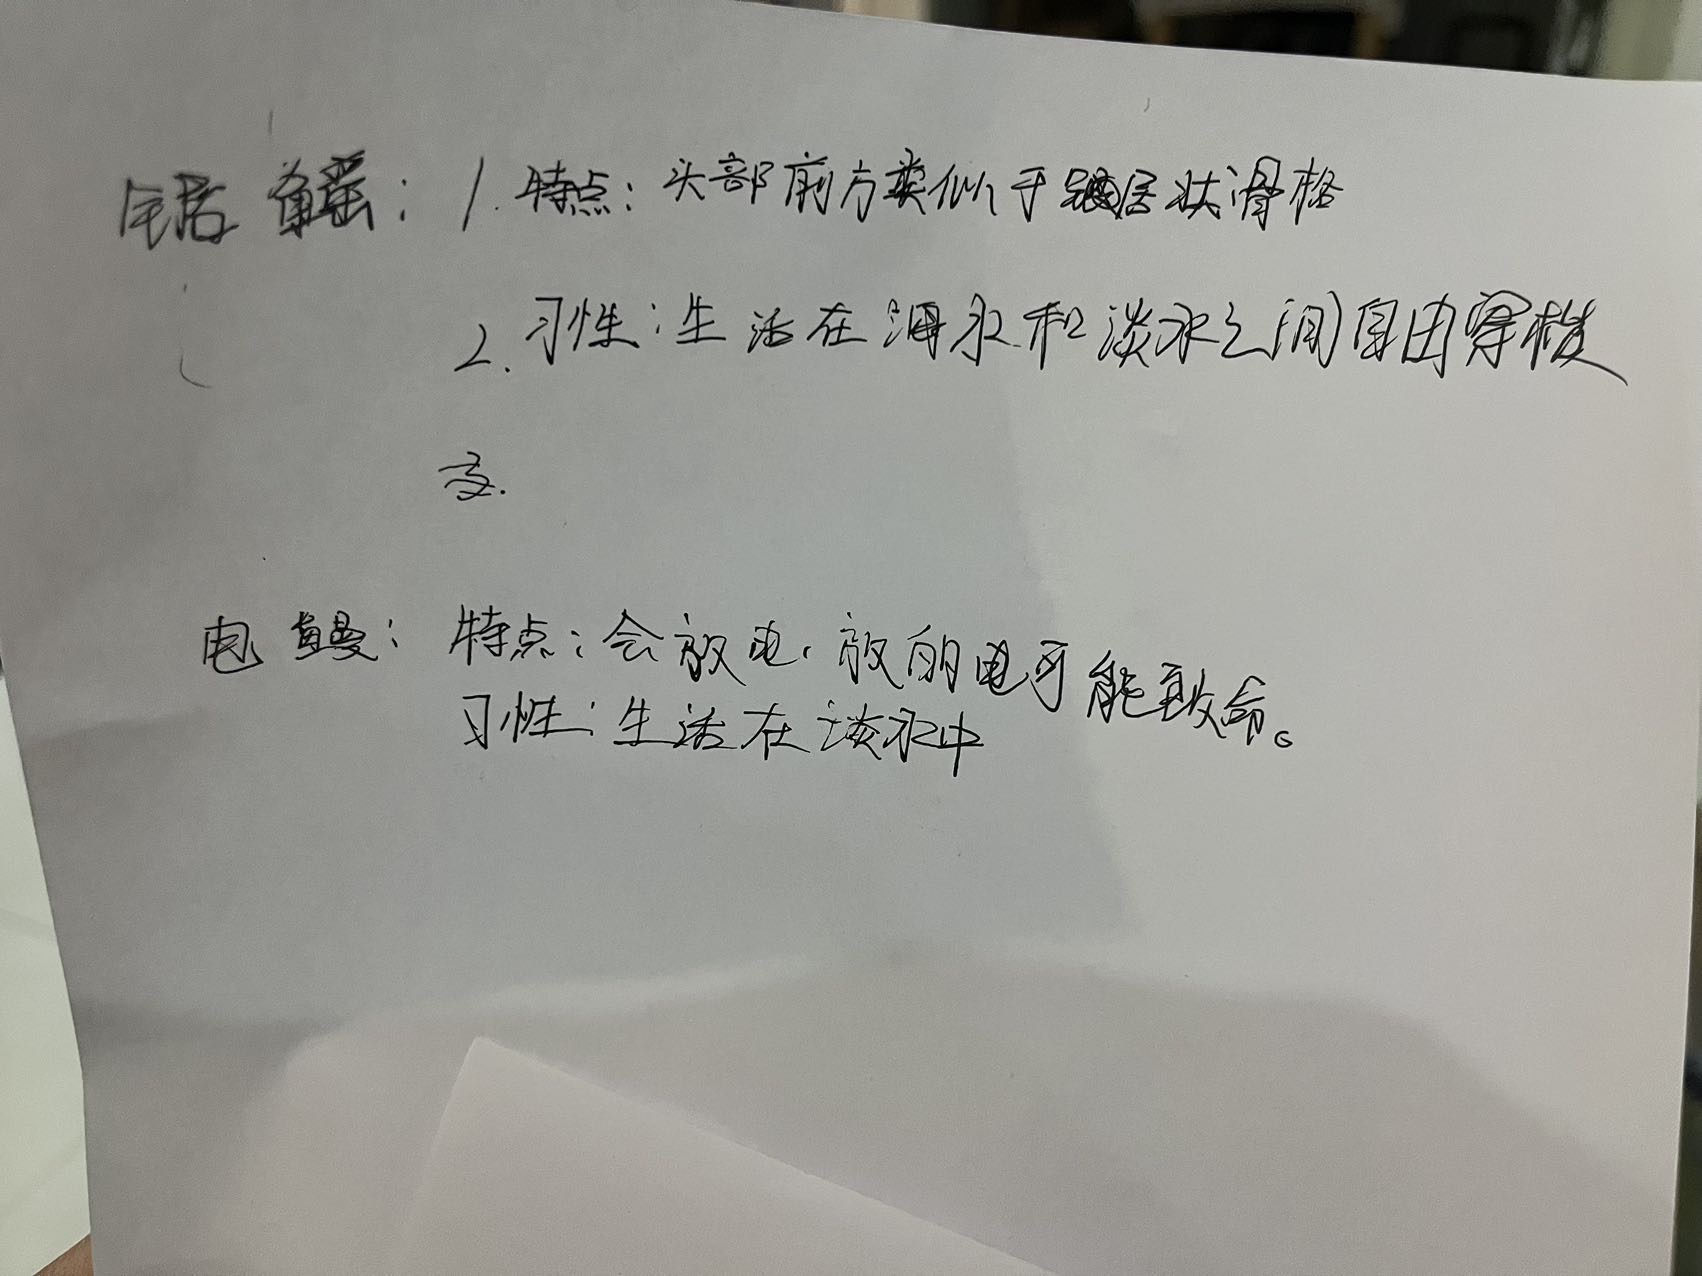 锯鳐：1.特点：头部前方类似于锯状滑格
2.习性：生活在海水和淡水之间自由穿梭
3.
电鳗：特点：会放电，放的电可能致命。
习性：生活在淡水中